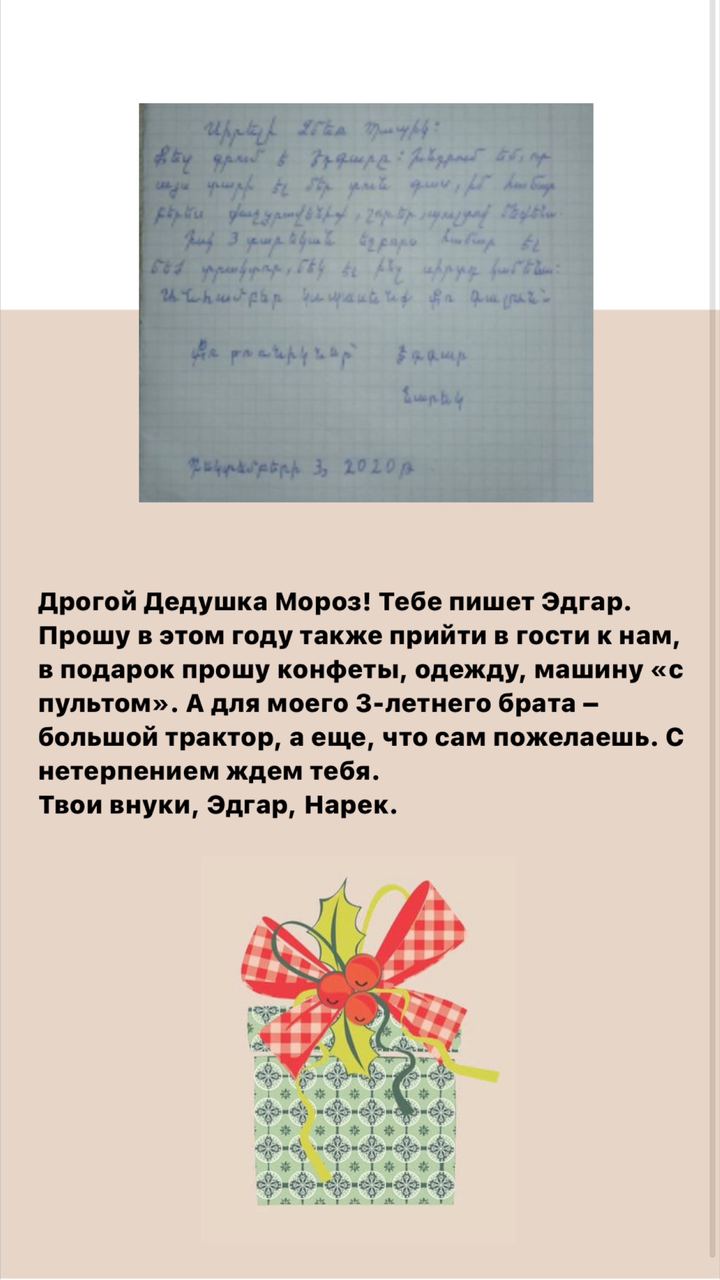 Սիրելի Ձմեռ Պապիկ:
Քեզ գրում է Էդգարը: Խնդրում եմ, որ
այս տարի էլ մեր տուն գաս, իմ համար
բերես քաղցրավենիք, շորեր, պուլտով մեքենա.
Իսկ 3 տարեկան եղբորս համար էլ
մեծ տրակտոր, մեկ էլ ինչ սիրտդ կամենա:
Անհամբեր կսպասենք քո գալուն:
Քո թոռնիկներ՝ Էդգար
Նարեկ
Դեկտեմբերի 3, 2020թ.
Дрогой Дедушка Мороз! Тебе пишет Эдгар.
Прошу в этом году также прийти в гости к нам,
в подарок прошу конфеты, одежду, машину «с
пультом». А для моего 3-летнего брата –
большой трактор, а еще, что сам пожелаешь. С
нетерпением ждем тебя.
Твои внуки, Эдгар, Нарек.